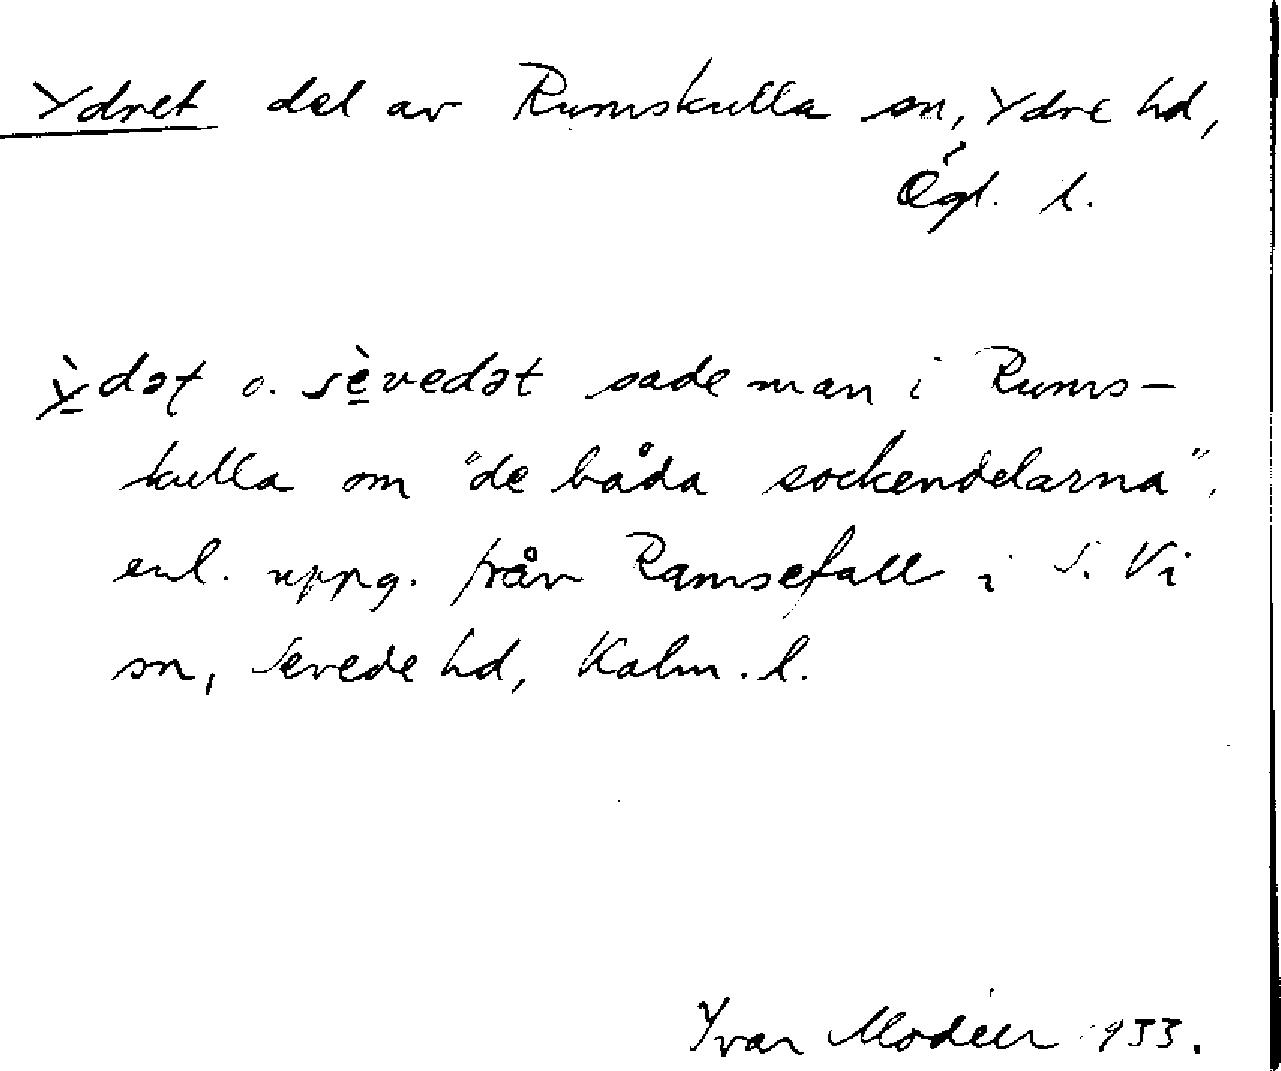 Ydret del av Rumskulla sn, Ydre hd,
Ögl. l.
ỳ̱dət o. sè̱vedət sade man i Rums-
kulla om "de båda sockendelarna",
enl. uppg. från Ramsefall i S. Vi
sn, Sevede hd, Kalm. l.
Yvar Modéer 1933.